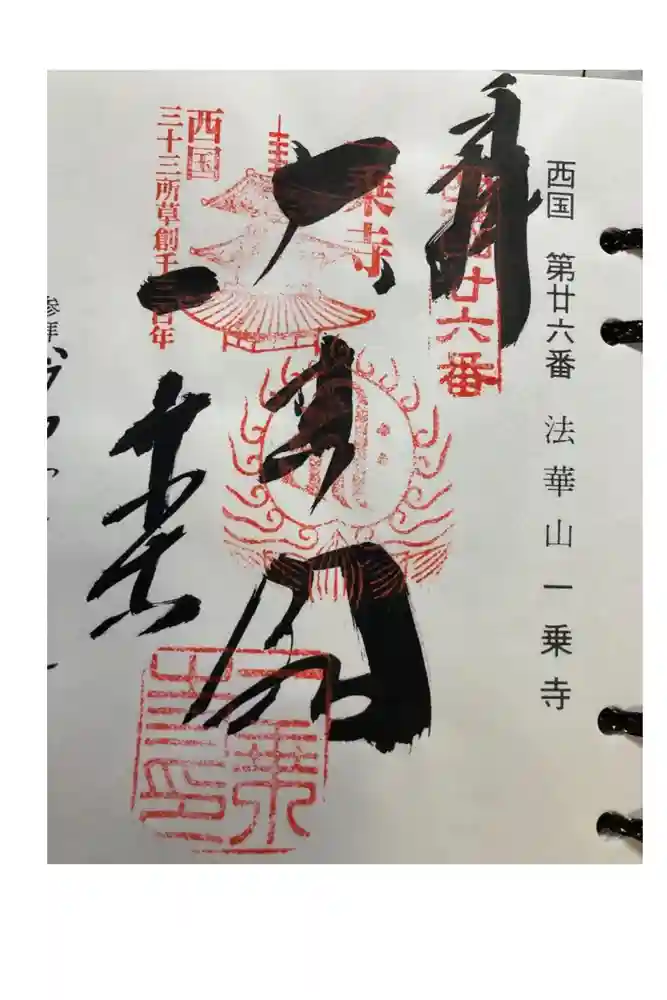 西国 第廿六番 法華山 一乗寺
奉拝
西国廿六番
大悲閣
一乗寺
西国
三十三所草創千三百年
一乗寺
参拝